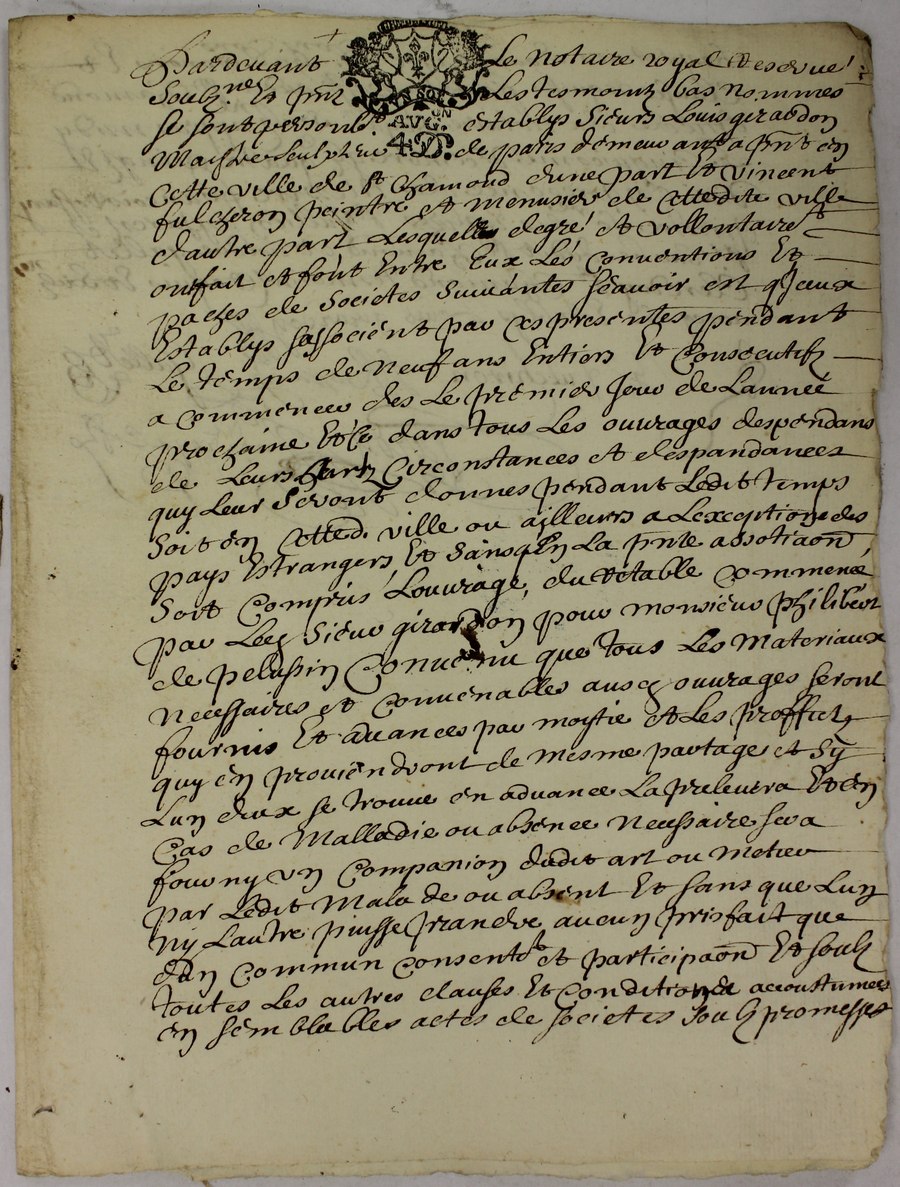 Pardevant Le notaire royal reservé
Soubz.né Et pnt Les tesmoins bas nommes
se sont personl.t establys Sieurs Louis girardon
AVG.ON
4.D.
Maistre Sculpteur de paris demeurant a pnt en
Cette ville de st chamond dune part Et vincent
fulcheron peintre et menusier de cettedite ville
dautre part Lesquelles degré et vollontairemt
ont fait et font Entre Eux Les conventions Et
paches de Societes Suivantes scavoir est q Jceux
Establys sassocient par ces presentes pendant
Le temps de neuf ans Entiers Et Consecutifz
a commencer des Le premier Jour de Lannée
prochaine dans tous Les ouvrages despendans
de Leurs Circonstances et despandances
quy Leur Seront donnes pendant Ledit temps
Soit en cetted. ville ou ailleurs a Lexception des
pays Estrangers, Et sans q En La pnte assotiaon
Soit Compris Louvrage, du retable commence
par Led Sieur girardon pour monsieur philibert
de pelussin Convenu que tous Les Materiaux
necessaires et convenables ausd ouvrages seront
fournis Et advances par moytie et Les proffictz
quy en proviendront de mesme partage et Sy
Lun deux se trouve en advance La prelevera Et en
Cas de Malladie ou absence necessaire sera
fourny un Companion dudit art ou metier
par Ledit Malade ou absent Et sans que Lun
ny Lautre puisse prandre aucun prisfait que
dun commun consentt et participaon Et soubz
toutes Les autres clauses Et Conditions accoustumees
en semblables actes de societes Soubz promesses